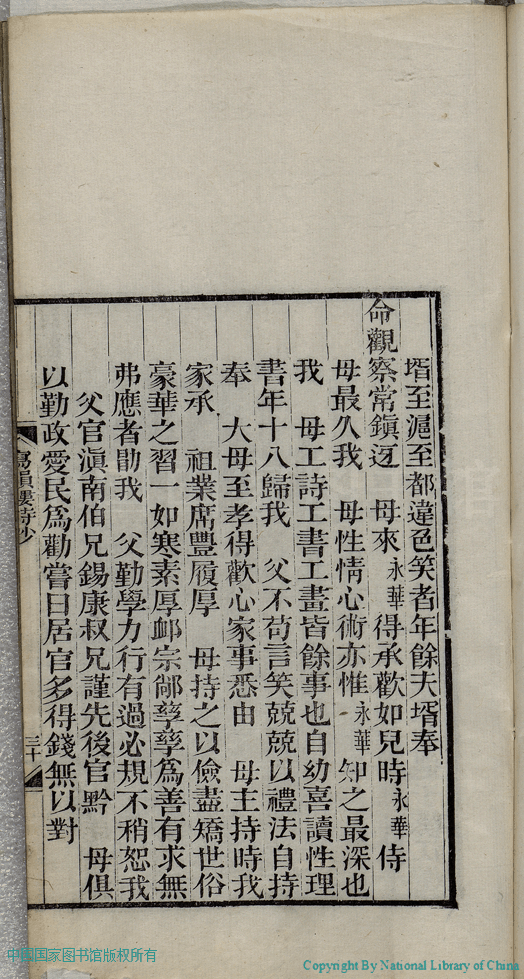 壻至滬至都違色笑者年餘夫壻奉
命觀察常鎭迓 母來永華得承歡如兒時永華侍
母最久我 母性情心術亦惟永華知之最深也
我 母工詩工書工畫皆餘事也自幼喜讀性理
書年十八歸我 父不苟言笑兢兢以禮法自持
奉 大母至孝得歡心家事悉由 母主持時我
家承 祖業席豐履厚 母持之以儉盡矯世俗
豪華之習一如寒素厚衈宗鄰孳孳爲善有求無
弗應者勖我 父勤學力行有過必規不稍恕我
父官滇南伯兄錫康叔兄謹先後官黔 母俱
以勤政愛民爲勸嘗曰居官多得錢無以對
寫韻樓詩鈔
三十
中国国家图书馆版权所有
Copyright By National Library of China